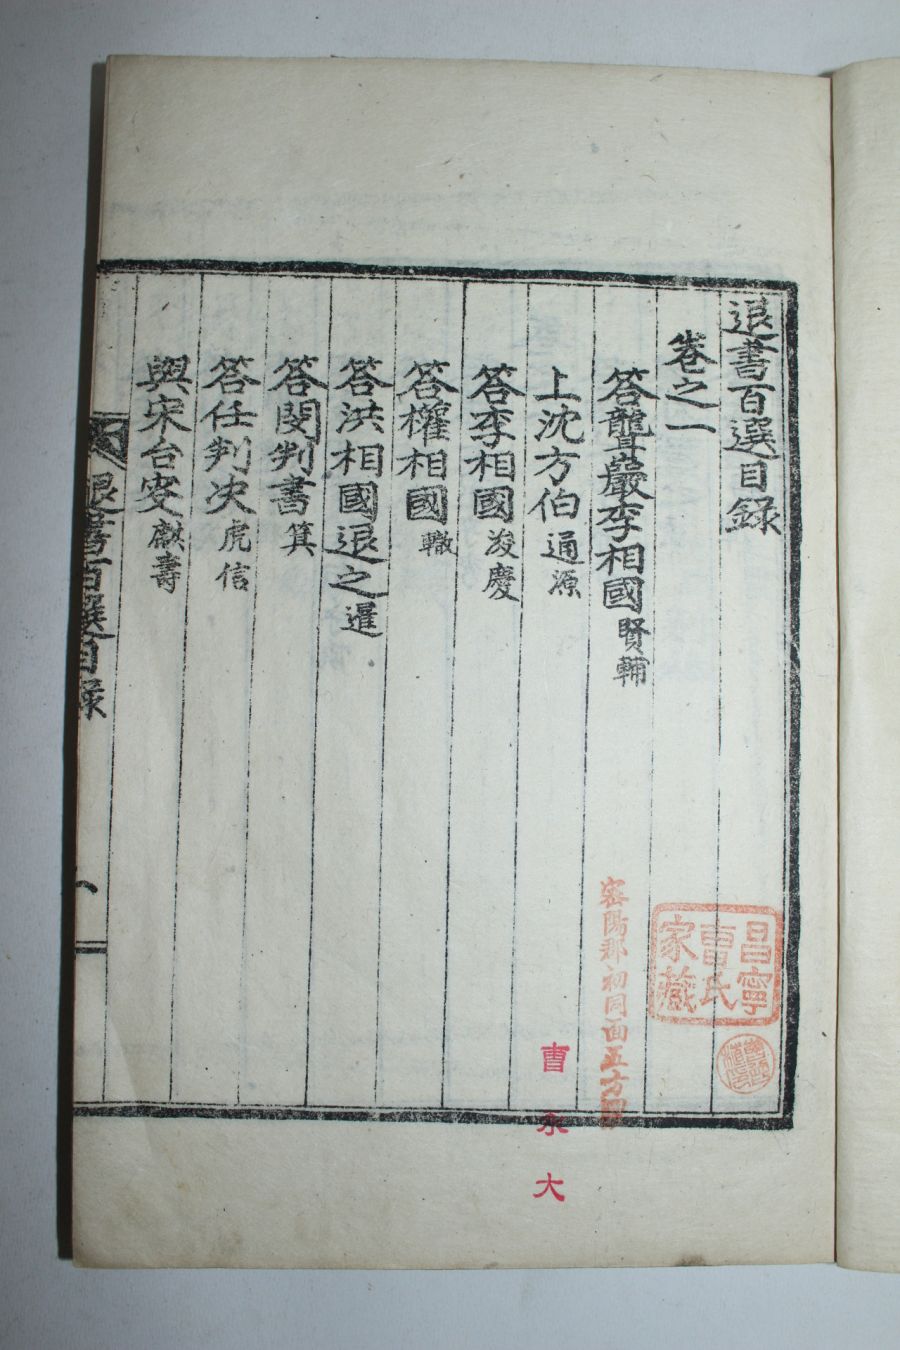 退書百選目録
卷之一
答聾巖李相國 賢輔
上沈方伯 通源
答李相國 浚慶
答權相國 轍
答洪相國退之 暹
答閔判書 箕
答任判决 虎信
與宋台叟 麒壽
退書百選目録
昌寧
曺氏
家藏
密陽郡初同面五方里
曺永大